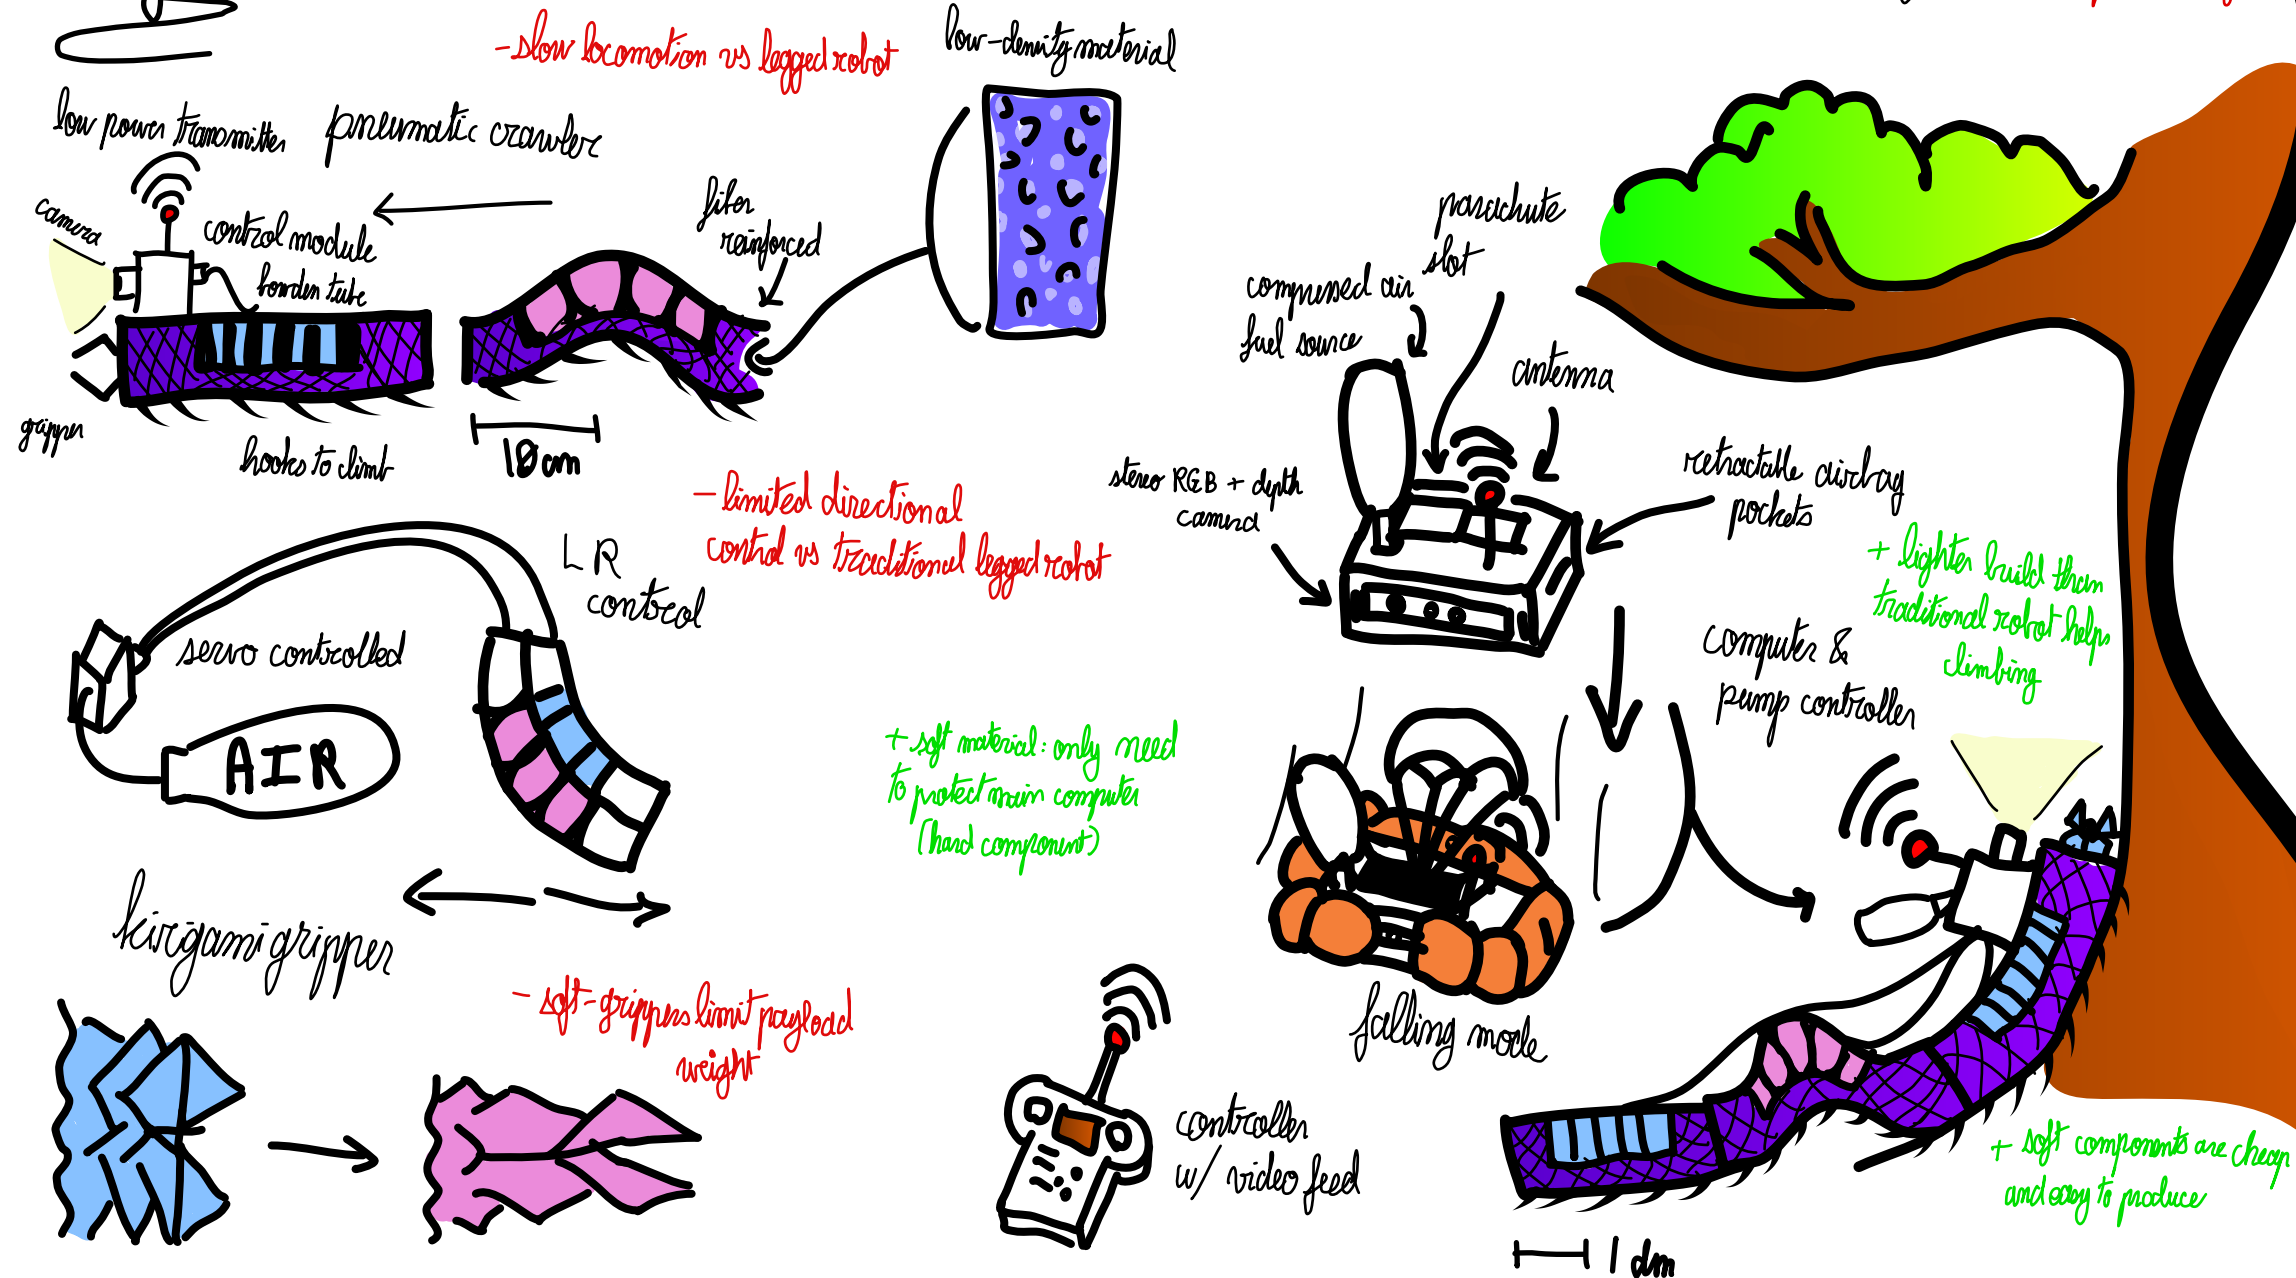 - slow locomotion vs legged robot
low-density material
low power transmitter
pneumatic crawler
camera
control module
bowden tube
fiber
reinforced
gripper
hooks to climb
10 cm
- limited directional
control vs traditional legged robot
L R
control
servo controlled
AIR
+ soft material: only need
to protect main computer
(hard component)
kirigami gripper
- soft-grippers limit payload
weight
parachute
slot
compressed air
fuel source
antenna
stereo RGB + depth
camera
retractable airbag
pockets
+ lighter build than
traditional robot helps
climbing
computer &
pump controller
falling mode
controller
w/ video feed
+ soft components are cheap
and easy to produce
1 dm